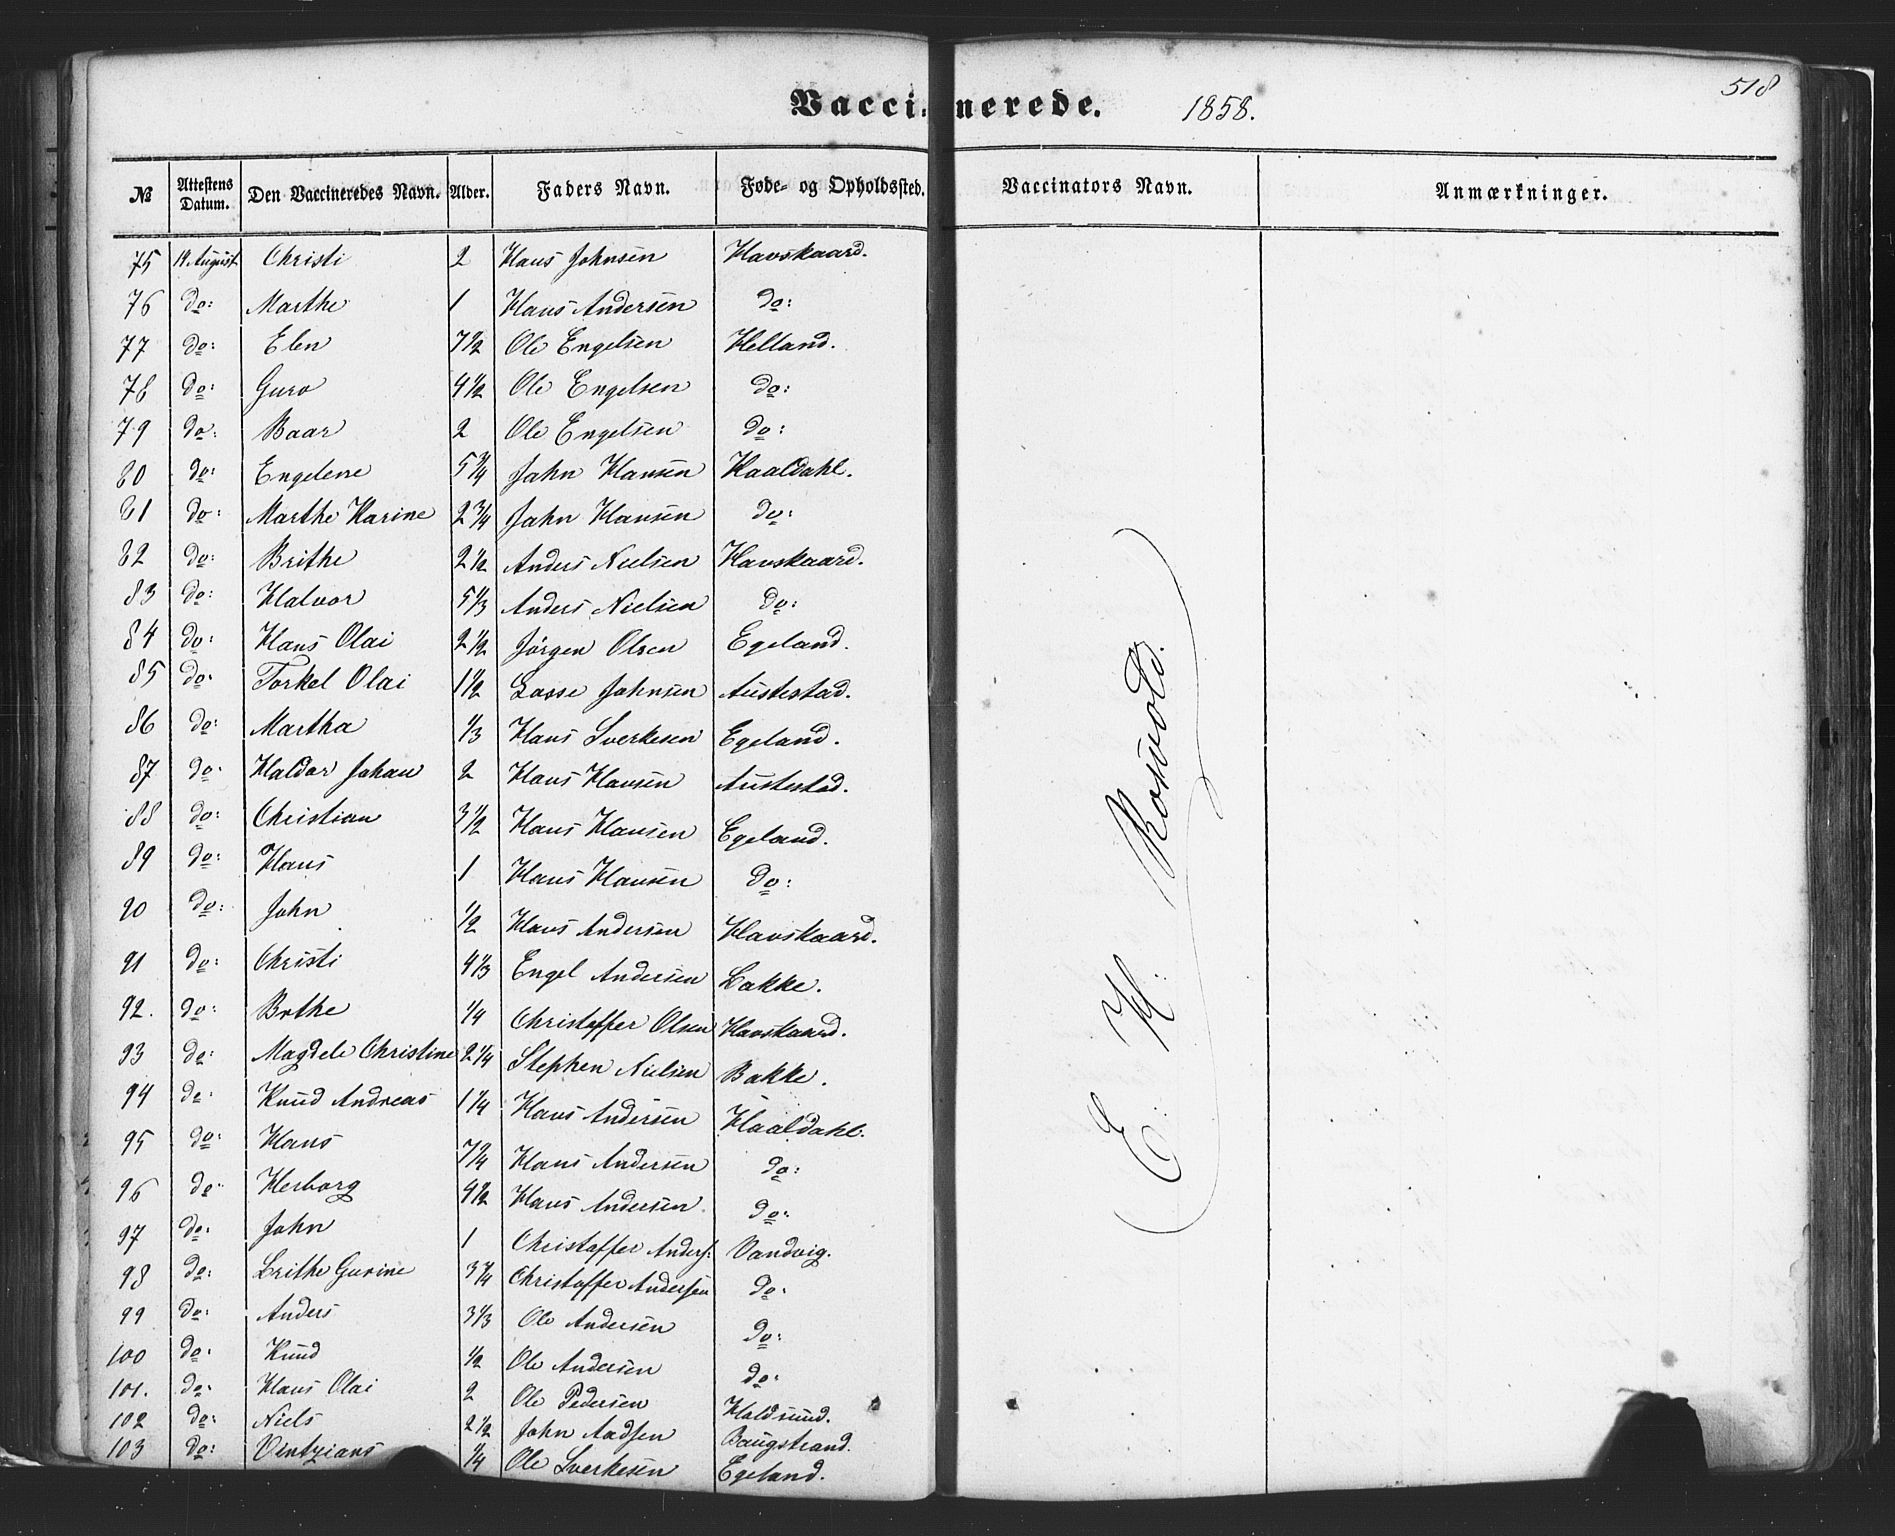 518
Vaccinerede. 1858.
№ Attestens Datum. Den Vaccineredes Navn. Alder. Faders Navn. Føde- og Opholdssted. Vaccinators Navn. Anmærkninger.
75 14 August Christi 2 Hans Johnsen Havskaard.
76 do: Marthe 1 Hans Andersen do:
77 do: Elen 7 1/2 Ole Engelsen Helland.
78 do: Guro 4 1/2 Ole Engelsen do:
79 do: Baar 2 Ole Engelsen do:
80 do: Engelene 5 3/4 John Hansen Haaldahl.
81 do: Marthe Karine 2 3/4 John Hansen do:
82 do: Brithe 2 1/2 Anders Nielsen Havskaard.
83 do: Halvor 5 1/3 Anders Nielsen do:
84 do: Hans Olai 2 1/2 Jørgen Olsen Egeland.
85 do: Torkel Olai 1 1/2 Lasse Johnsen Austestad.
86 do: Martha 1/3 Hans Sverkesen Egeland.
87 do: Haldor Johan 2 Hans Hansen Austestad.
88 do: Christian 3 1/2 Hans Hansen Egeland.
89 do: Hans 1 Hans Hansen do:
90 do: John 1/2 Hans Andersen Havskaard.
91 do: Christi 4 1/3 Engel Andersen Bakke.
92. do: Brthe 1/4 Christoffer Olsen Havskaard.
93 do: Magdele Christine 2 1/4 Stephen Nielsen Bakke.
94 do: Knud Andreas 1 1/4 Hans Andersen Haaldahl.
95 do: Hans 7 3/4 Hans Andersen do:
96 do: Herborg 4 1/2 Hans Andersen do:
97 do: John 1 Christoffer Anders: Vandvig.
98 do: Brithe Gurine 3 3/4 Christoffer Andersen do:
99 do: Anders 3 1/3 Ole Andersen do:
100 do: Knud 1/2 Ole Andersen do:
101. do: Hans Olai 2 Ole Pedersen Haldsund.
102 do: Niels 2 1/2 John Aadsen Baugstrand.
103 do: Ventzians 1/4 Ole Sverkesen Egeland.
E. H. Rosvold.